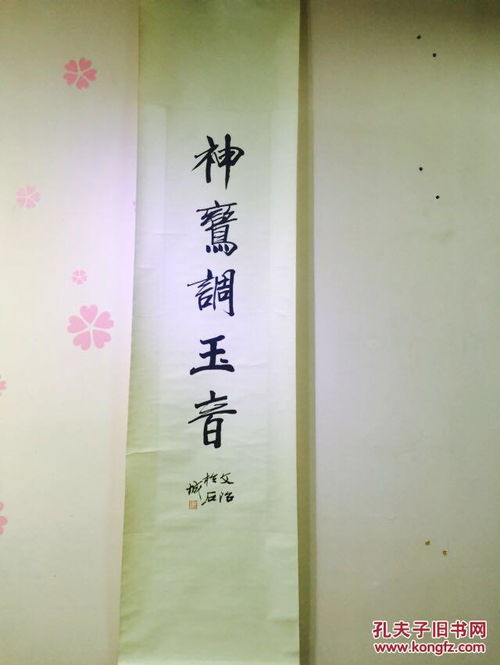 神鸞調玉音
文治
於石
城
孔夫子旧书网
www.kongfz.com